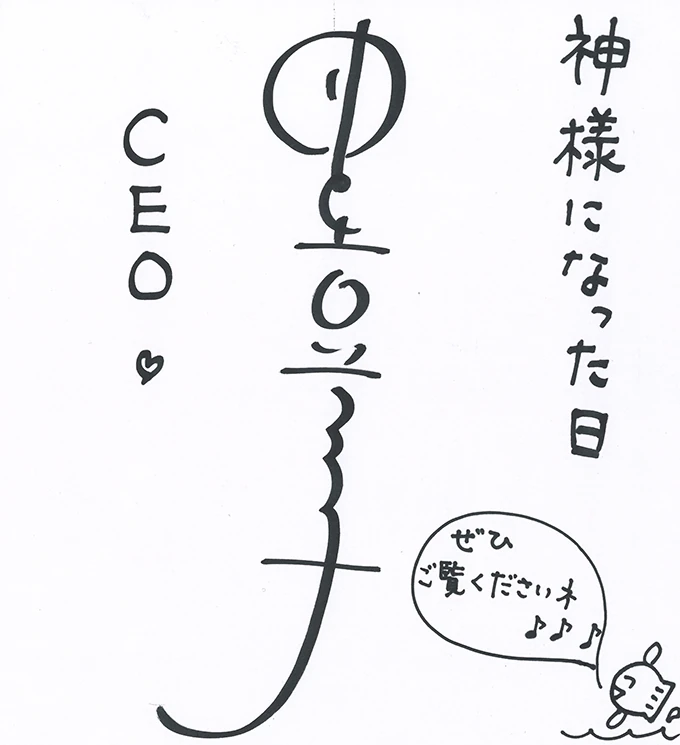 神様になった日
CEO♡
ぜひ
ご覧くださいネ
♪♪♪